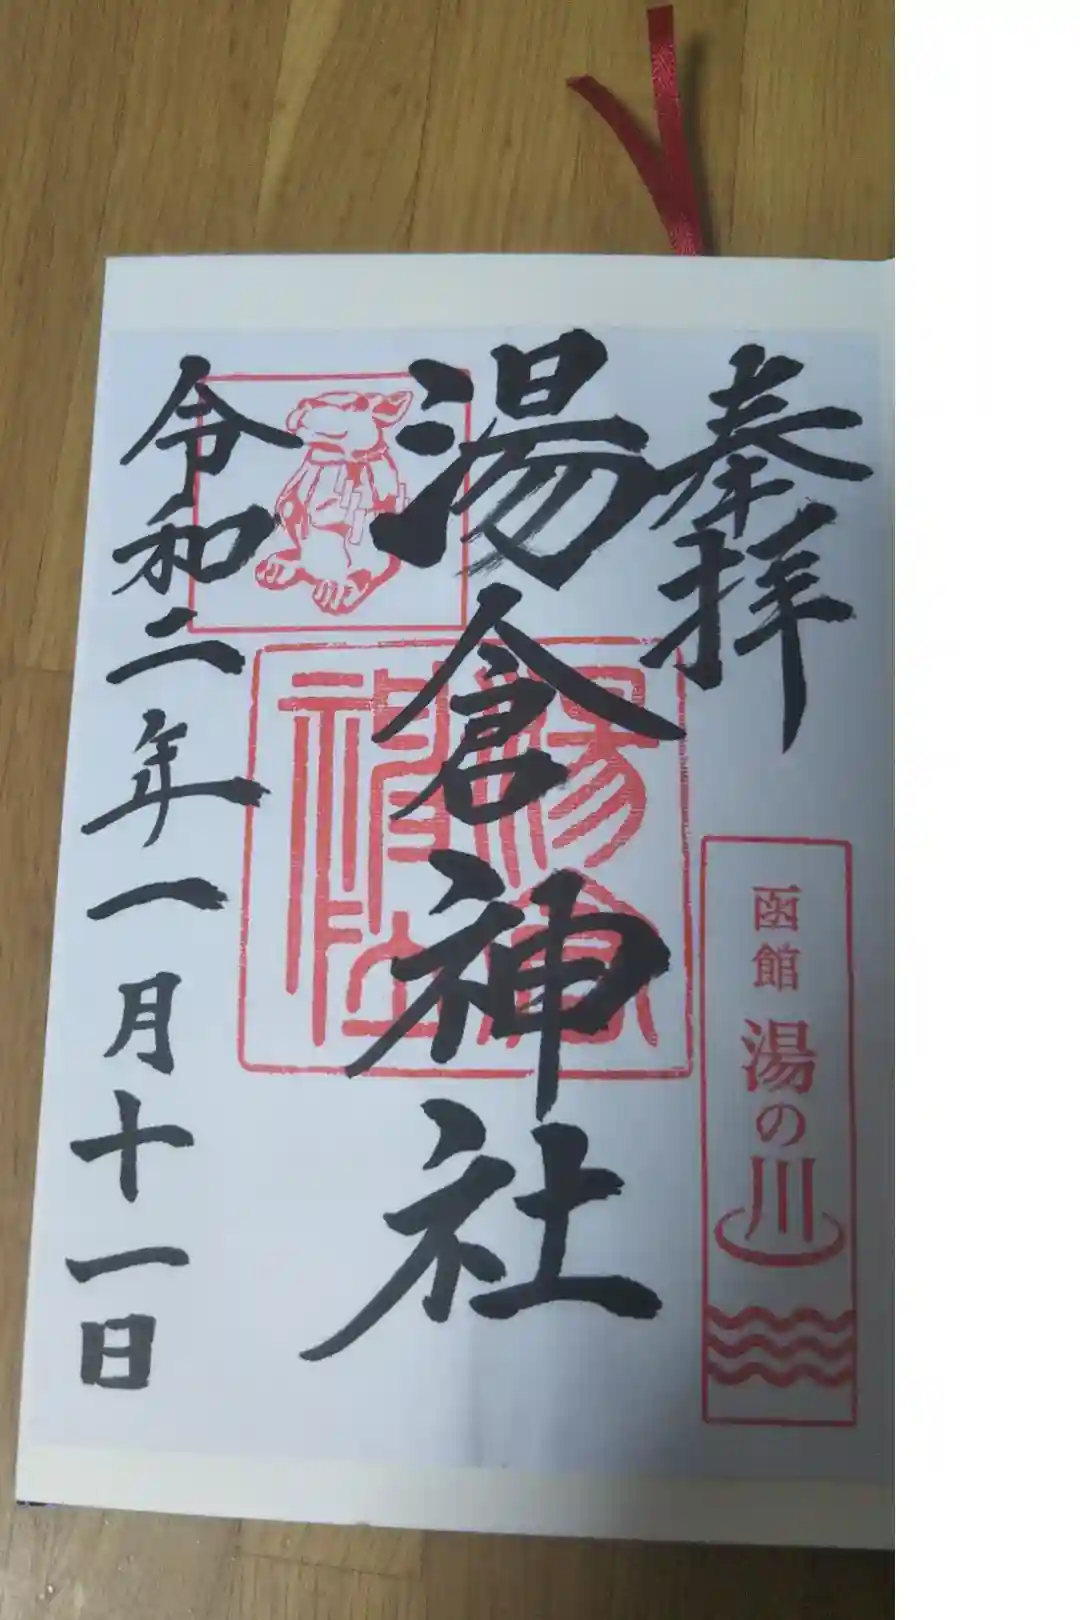 奉拝
函館
湯の川
湯倉神社
湯倉神社
令和二年一月十一日